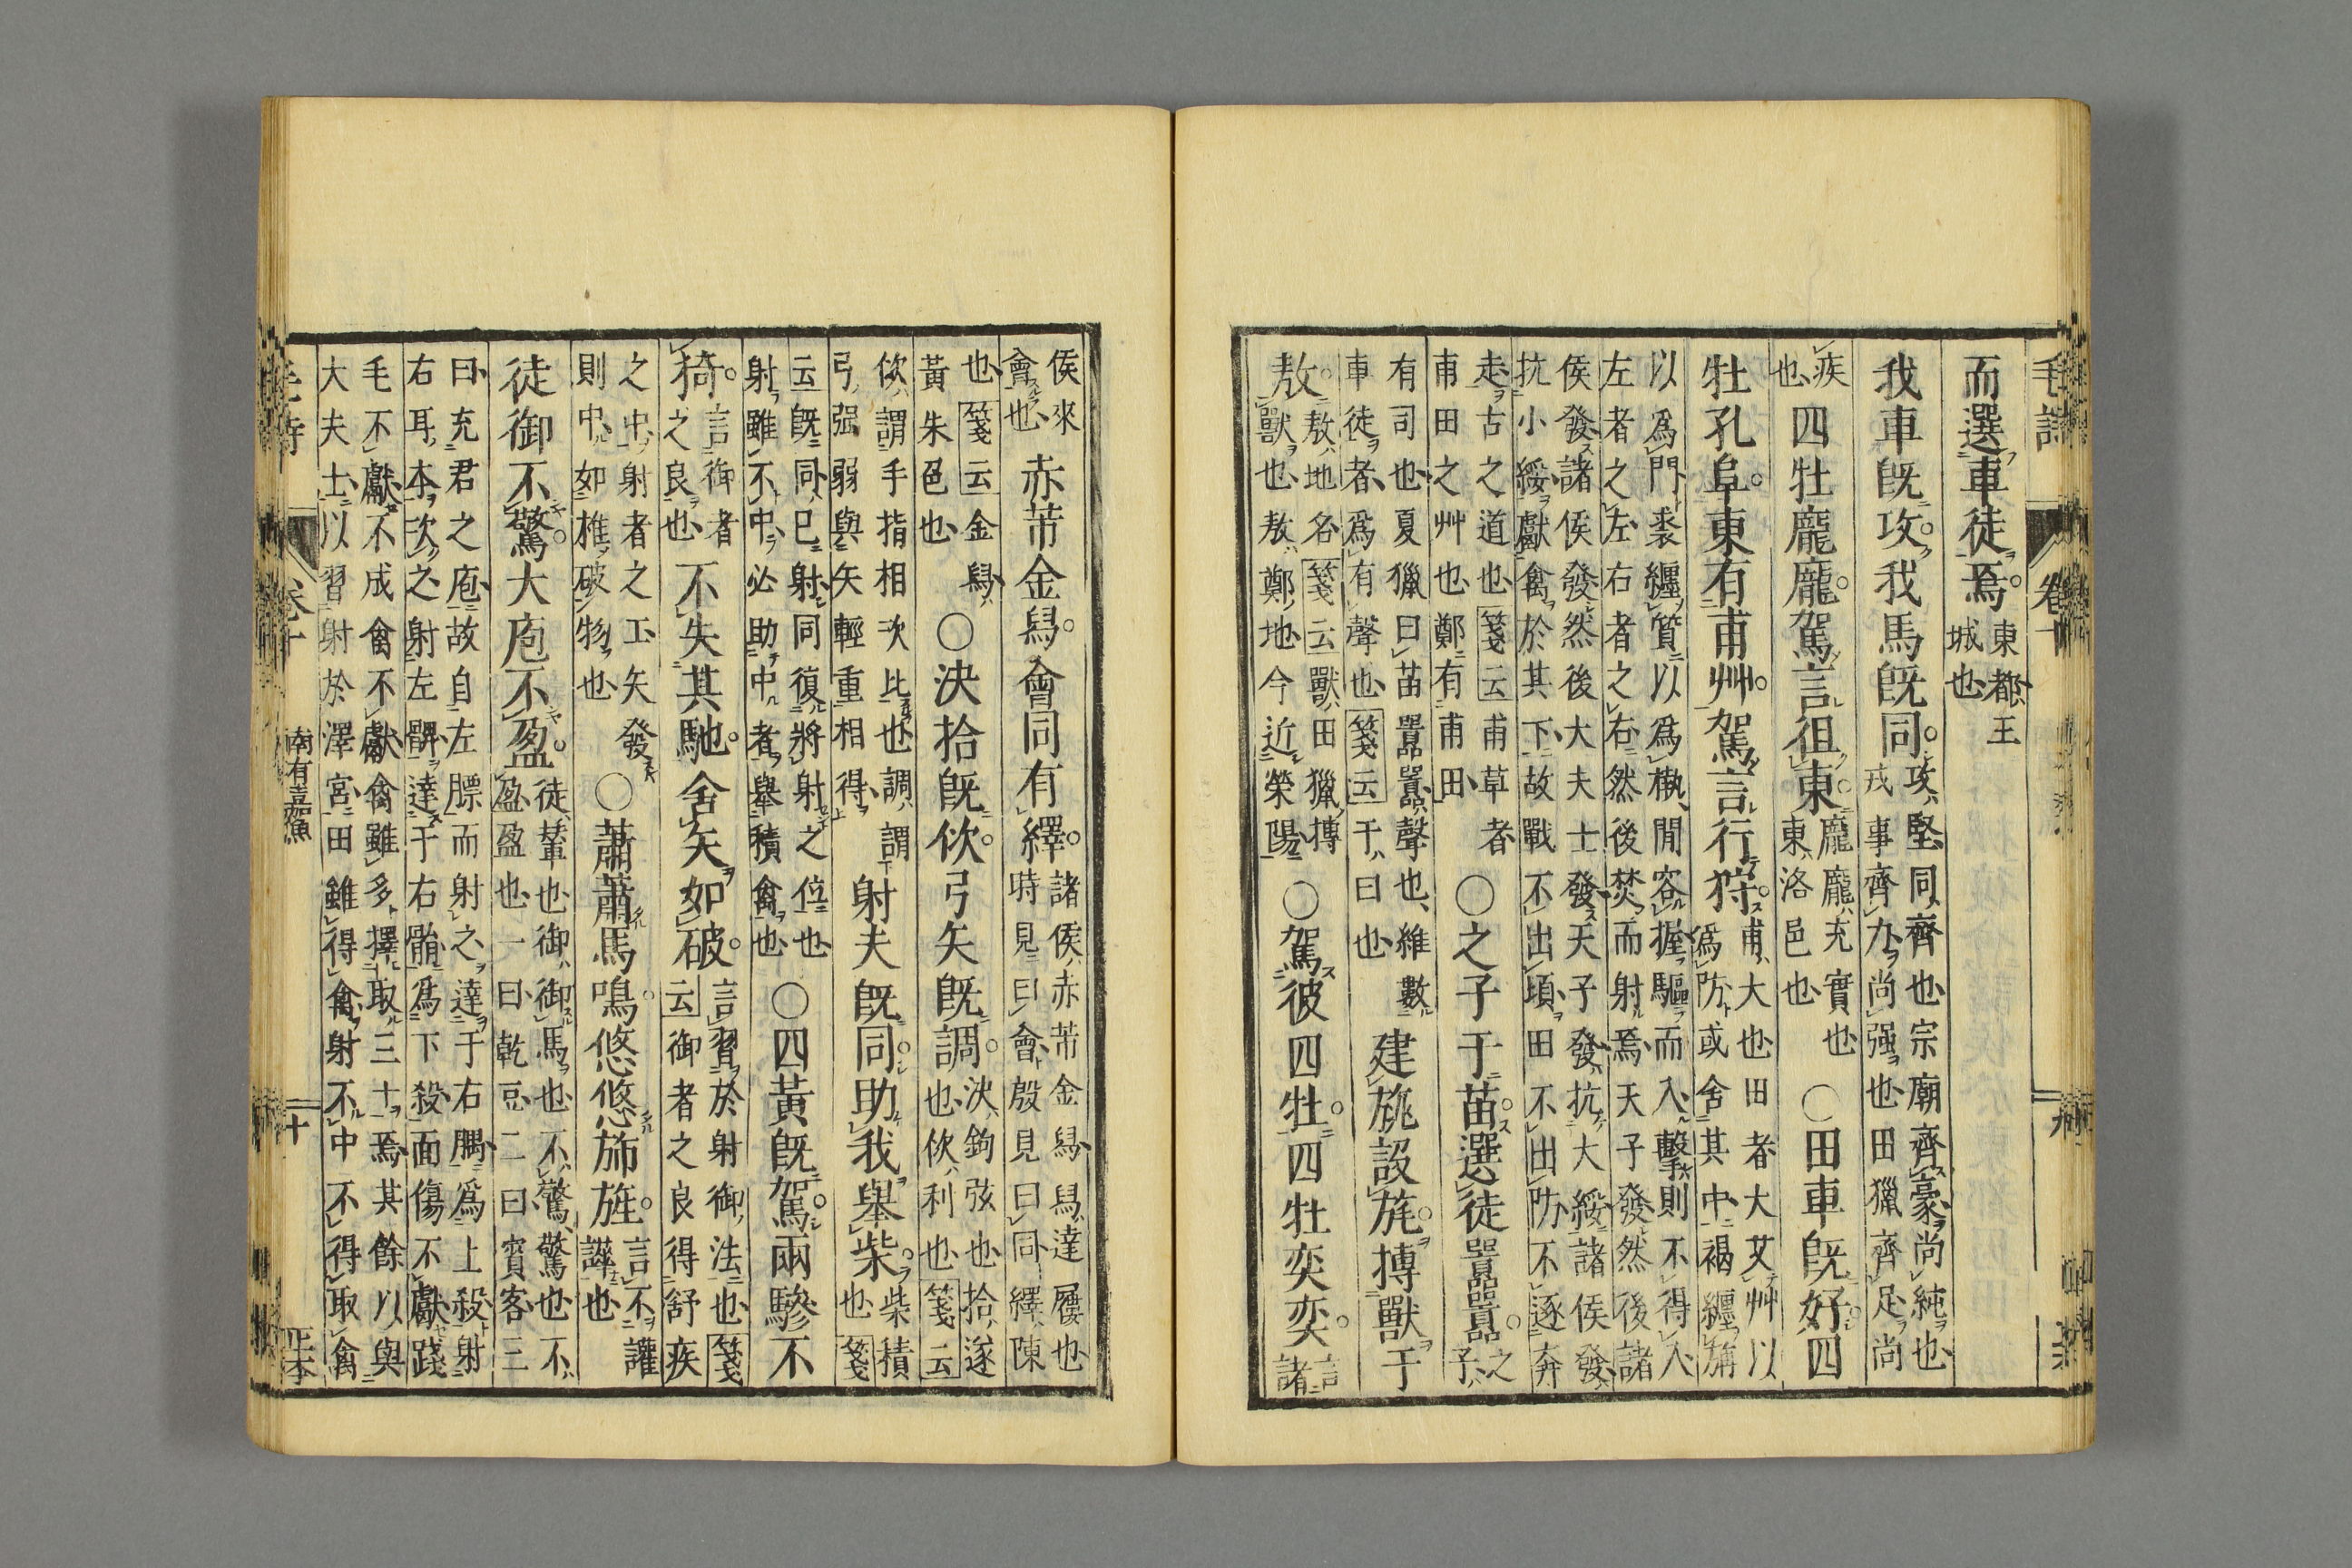 毛詩 卷十 九
而選車徒焉。東都王城也
我車旣攻。我馬旣同。攻堅同齊也宗廟齊豪尚純也戎事齊力尚强也田獵齊足尚
疾也四牡龐龐。駕言徂東。龐龐充實也東洛邑也○田車旣好。四
牡孔阜。東有甫艸。駕言行狩。甫大也田者大艾艸以爲防或舍其中褐纏旃
以爲門裘纏質以爲槸閒容握驅而入擊則不得入左者之左右者之右然後焚而射焉天子發然後諸
侯發諸侯發然後大夫士發天子發抗大綏諸侯發抗小綏獻禽於其下故戰不出頃田不出防不逐奔
走古之道也箋云甫草者甫田之艸也鄭有甫田○之子于苗。選徒嚻嚻。之子
有司也夏獵曰苗嚻嚻聲也維數車徒者爲有聲也箋云于曰也建旐設旄。搏獸于
敖。敖地名箋云獸田獵搏獸也敖鄭地今近滎陽○駕彼四牡。四牡奕奕。言諸
侯來會也赤芾金舄。會同有繹。諸侯赤芾金舄舄達屨也時見曰會殷見曰同繹陳
也箋云金舄黃朱色也○決拾旣佽。弓矢旣調。決鉤弦也拾遂也佽利也箋云
佽謂手指相次比也調謂弓强弱與矢輕重相得射夫旣同。助我舉柴。柴積也箋
云旣同已射同復將射之位也射雖不中必助中者舉積禽也○四黃旣駕。兩驂不
猗。言御者之良也不失其馳。舍矢如破。言習於射御法也箋云御者之良得舒疾
之中射者之工矢發則中如椎破物也○蕭蕭馬鳴。悠悠旆旌。言不讙譁也
徒御不驚。大庖不盈。徒輦也御御馬也不驚驚也不盈盈也一曰乾豆二曰賓客三
曰充君之庖故自左膘而射之達于右腢爲上殺射右耳本次之射左髀達于右䯚爲下殺面傷不獻踐
毛不獻不成禽不獻禽雖多擇取三十焉其餘以與大夫士以習射於澤宮田雖得禽射不中不得取禽
毛詩 卷十 南有嘉魚 十 正本